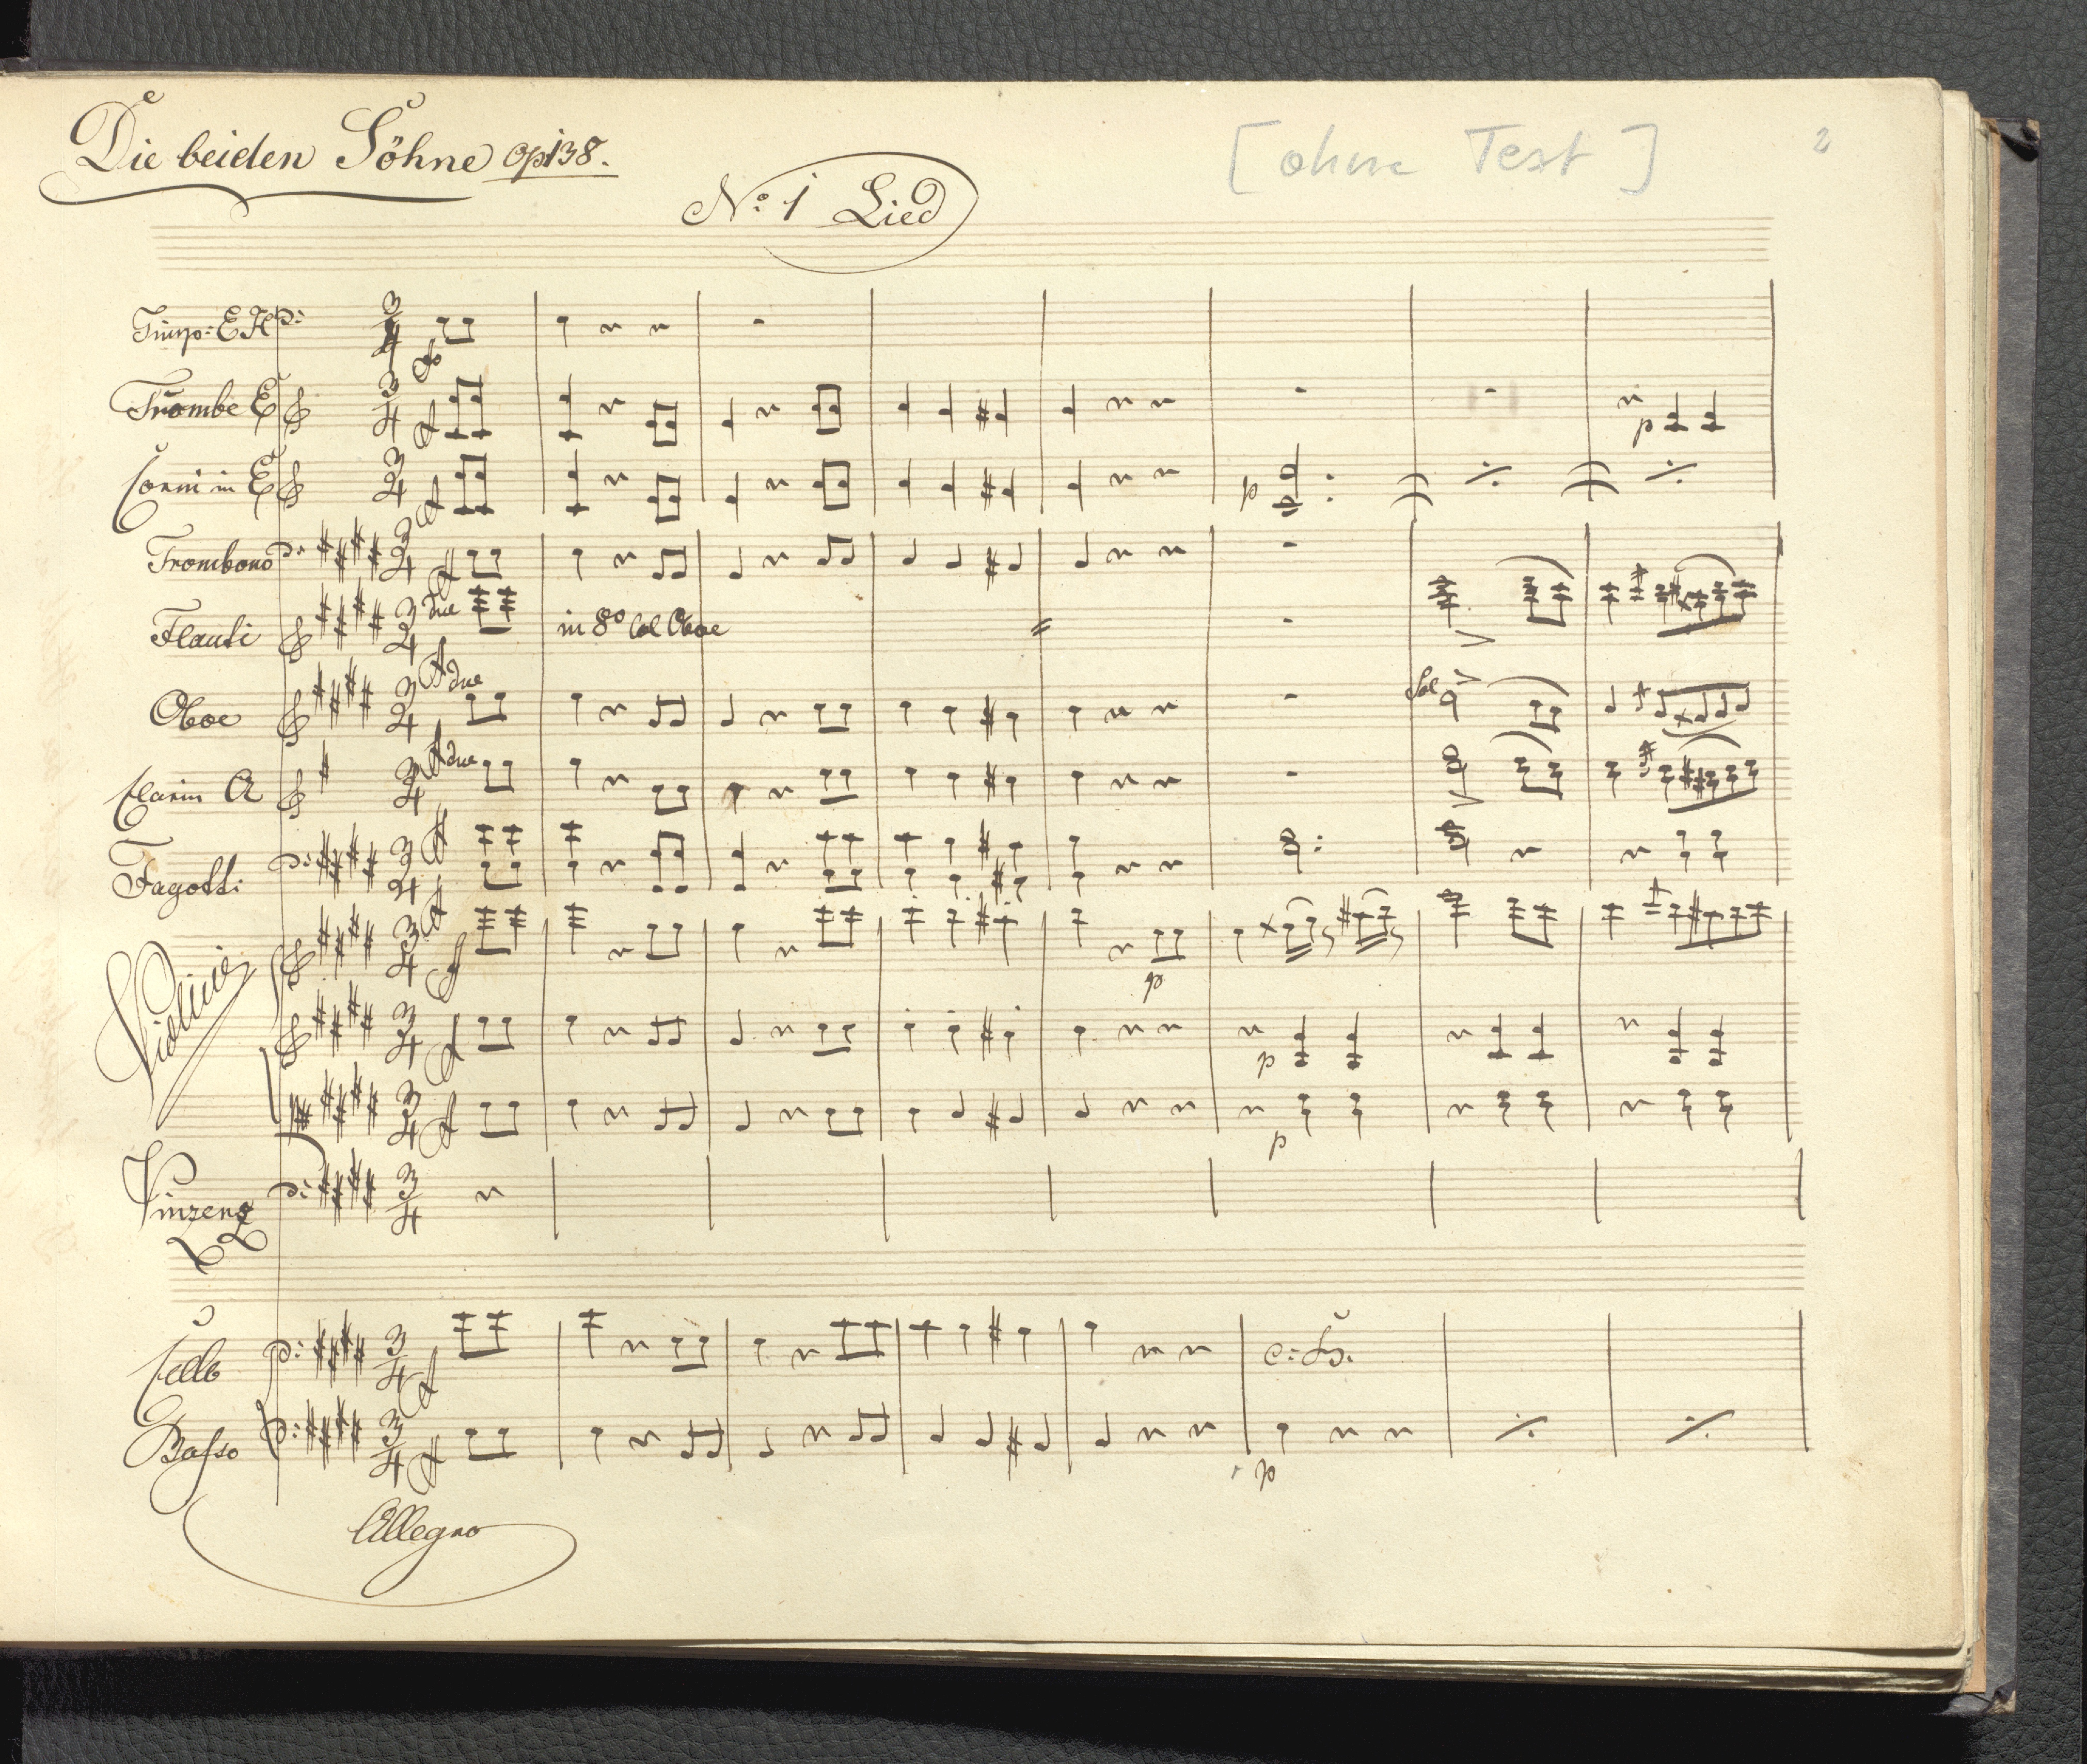 Die beiden Söhne Op 138.
[ohne Text]
2
No: 1 Lied
Timp: E H
Trombe E
Corni in E
Trombono
due
Flauti
in 8º Col Oboe
due
Oboe
Sol
due
Clarin A
Fagotti
Violini
p
p
p
Vinzenz
Cello
Basso
p
Allegro